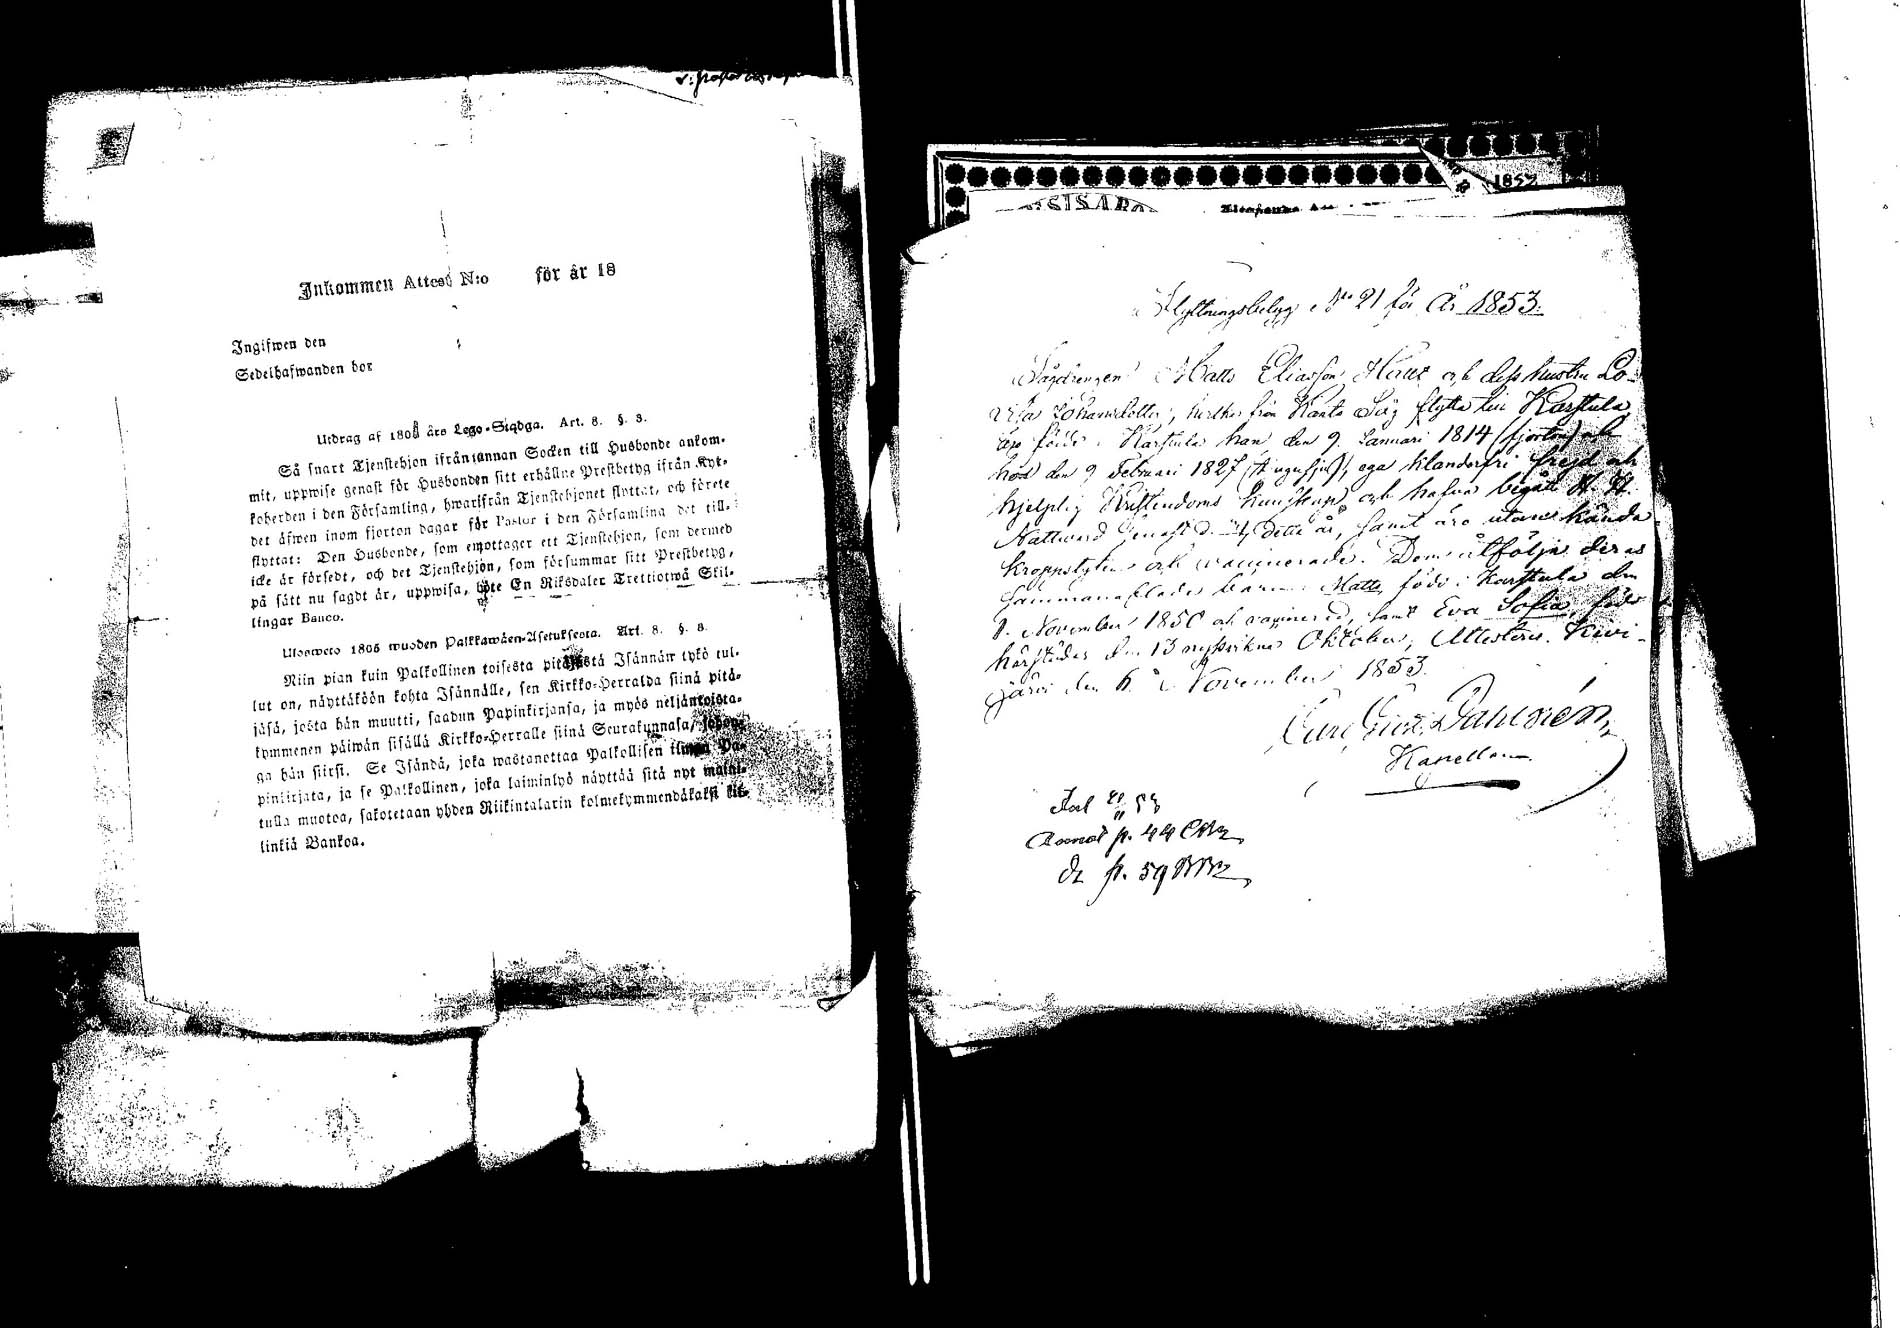 Inkommen Attest N:o för år 18
Ingifwen den
Sedelhafwanden bor
Utdrag af 1805 års Lego-Stadga. Art. 8. §. 3.
Så snart Tjenstehjon ifrån annan Socken till Husbonde ankom-
mit, uppwise genast för Husbonden sitt erhållne Prestbetyg ifrån Kyr-
koherden i den Församling, hwarifrån Tjenstehjonet flyttat, och förete
det äfwen inom fjorton dagar för Pastor i den Församling det till-
flyttat: Den Husbonde, som emottager ett Tjenstehjon, som dermed
icke är försedt, och det Tjenstehjon, som försummar sitt Prestbetyg,
på sätt nu sagdt är, uppwisa, böte En Riksdaler Trettiotwå Skil-
lingar Banco.
Ulosweto 1805 wuoden Palkkawäen-Asetuksesta. Art. 8. §. 3.
Niin pian kuin Palkollinen toisesta pitäjästä Isännän tykö tul-
lut on, näyttäköön kohta Isännälle, sen Kirkko-Herralda siinä pitä-
jäsä, josta hän muutti, saadun Papinkirjansa, ja myös neljäntoista-
kymmenen päiwän sisällä Kirkko-Herralle siinä Seurakunnasa, johon-
ga hän siirsi. Se Isändä, joka wastanottaa Palkollisen ilman Pa-
pinkirjata, ja se Palkollinen, joka laiminlyö näyttää sitä nyt maini-
tulla muotoa, sakotetaan yhden Riikintalarin kolmekymmendäkaksi kil-
linkiä Bankoa.
1853
Flyttningsbetyg No 21 för År 1853.
Drängen Matts Eliasson och dess hustru Lo-
visa Johansdotter, hvilka från flytta till Karstula,
äro födde i Karstula han den 9 Januari 1814 (fjorton) och
hon den 9 Februari 1827 (tjugusju), ega klanderfri frejd och
hjelplig Kristendoms kunskap och hafva begått H. H.
Nattward senast d. detta år, samt äro utan kända
kroppslyten och vaccinerade. Dem åtfölja deras
sammanaflade barn: Matts, född i Karstula den
November 1850 och vaccinerad, samt Eva Sofia, född
härstädes den 13 Oktober, Attesterar. Kivi-
järvi den 6 November 1853.
Dahlström
Kapellan.
p. 44
p. 59